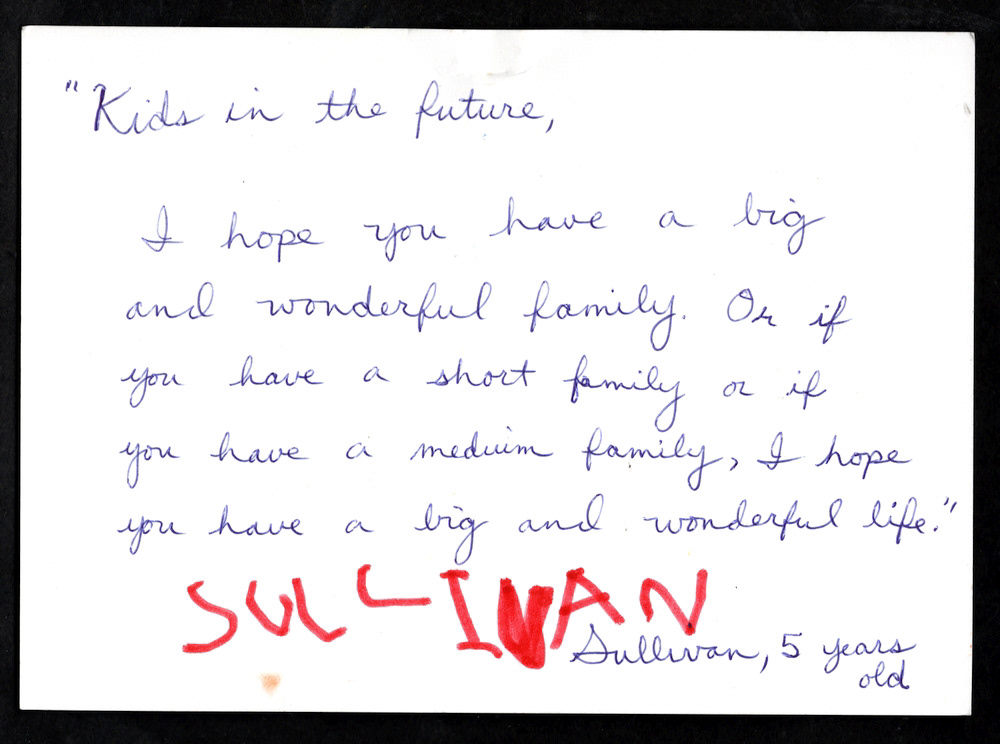 "Kids in the future,
I hope you have a big
and wonderful family. Or if
you have a short family or if
you have a meduim family, I hope
you have a big and wonderful life."
SULLIVAN
Sullivan, 5 years
old